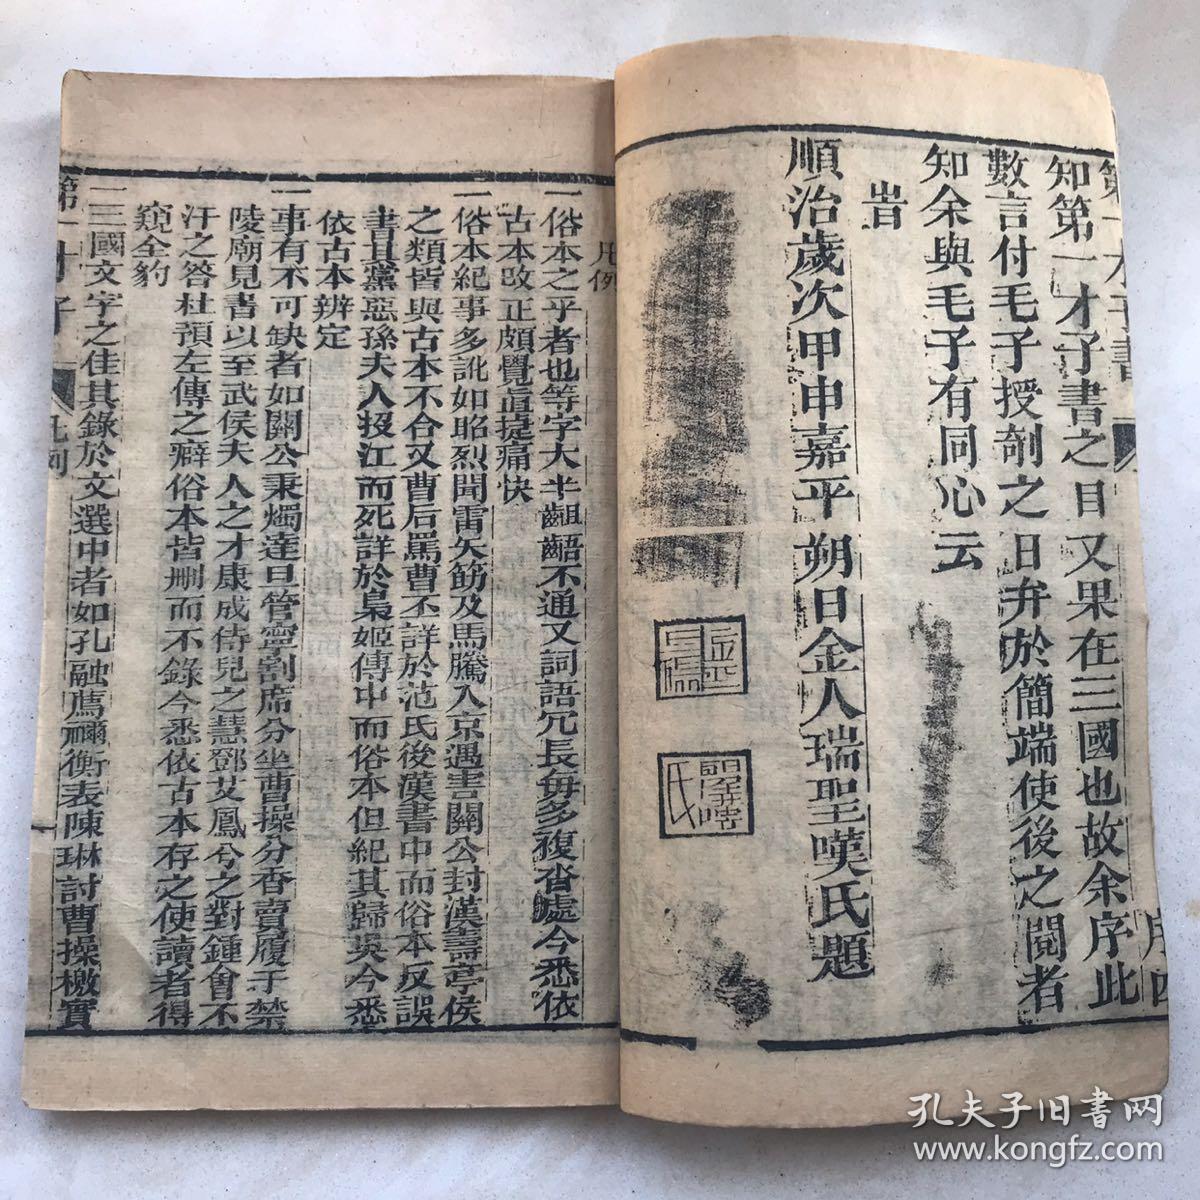 知第一才子書之目又果在三國也故余序此
數言付毛子授剞之日弁於簡端使後之閱者
知余與毛子有同心云
旹
順治歲次甲申嘉平朔日金人瑞聖嘆氏題
序四
凡例
一俗本之乎者也等字大半齟齬不通又詞語冗長每多複沓處今悉依
古本改正頗覺直捷痛快
一俗本紀事多訛如昭烈聞雷失筯及馬騰入京遇害關公封漢壽亭侯
之類皆與古本不合又曹后罵曹丕詳於范氏後漢書中而俗本反誤
書其黨惡孫夫人投江而死詳於梟姬傳中而俗本但紀其歸吳今悉
依古本辨定
一事有不可缺者如關公秉燭達旦管寧割席分坐曹操分香賣履于禁
陵廟見畫以至武侯夫人之才康成侍兒之慧鄧艾鳳兮之對鍾會不
汗之答杜預左傳之癖俗本皆刪而不錄今悉依古本存之使讀者得
窺全豹
一三國文字之佳其錄於文選中者如孔融薦禰衡表陳琳討曹操檄實
第一才子
凡例
孔夫子旧书网
www.kongfz.com